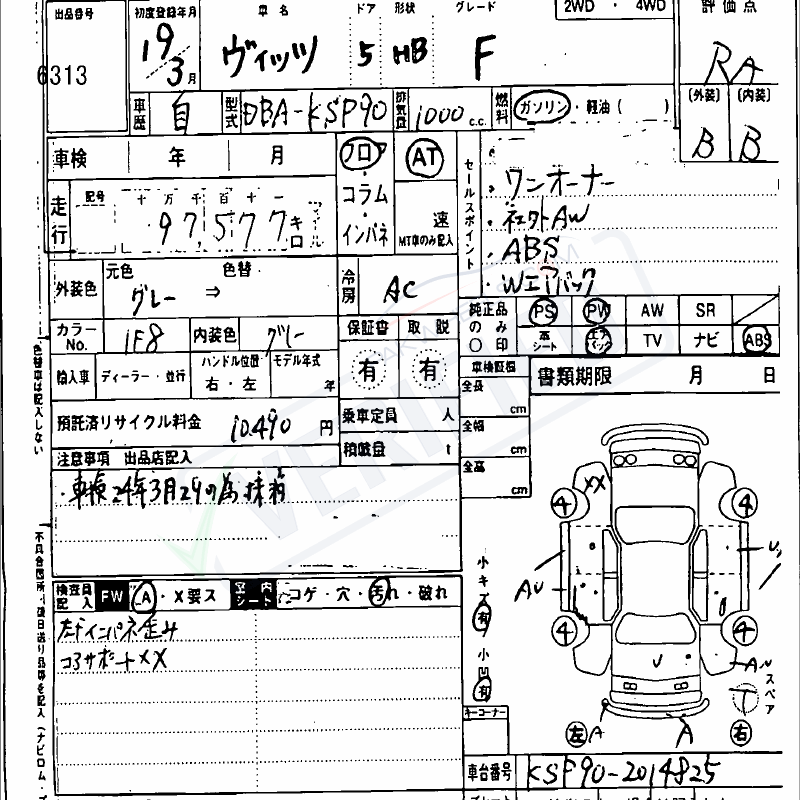 出品番号 初度登録年月 車名 ドア 形状 グレード 2WD ・ 4WD 評価点
6313 19/3月 ヴィッツ 5 HB F RA
車歴 自 型式 DBA-KSP90 排気量 1000 c.c. 燃料 ガソリン・軽油( ) (外装) (内装)
B B
車検 年 月 フロア AT セールスポイント
・ワンオーナー
走行 記号 十万千百十一 コラム
97,577 キロ マイル インパネ 速 MT車のみ記入
・社外AW
・ABS
・Wエアバック
外装色 元色 グレー ⇒ 色替 冷房 AC
純正品のみ○印 PS PW AW SR
革シート エアバック TV ナビ ABS
カラーNo. 1F8 内装色 グレー 保証書 取説
有 有
輸入車 ディーラー・並行 ハンドル位置 右・左 モデル年式 年
車検証欄 書類期限 月 日
全長 cm
預託済リサイクル料金 10.490 円 乗車定員 人
全幅 cm
注意事項 出品店記入 積載量 t
全高 cm
・車検24年3月29の為抹消
色替車は記入しない
検査員記入 FW A・X要ス 内 シート コゲ・穴・汚れ・破れ
左ドインパネ歪み
コアサポートXX
小キズ 有
小凹 有
キーコーナー
XX
4 4
AU
4 4
スペア
T
左 A A 右
車台番号 KSP90-2014825